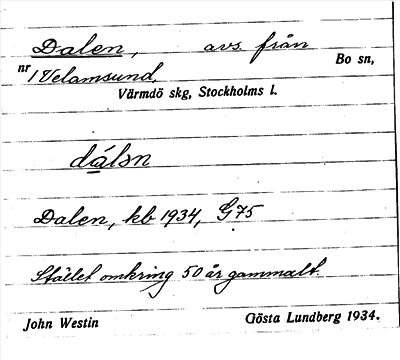 Dalen, avs. från Bo sn,
nr 1 Velamsund,
Värmdö skg, Stockholms l.
dálən
Dalen, kb 1934, G75
Stället omkring 50 år gammalt
John Westin Gösta Lundberg 1934.